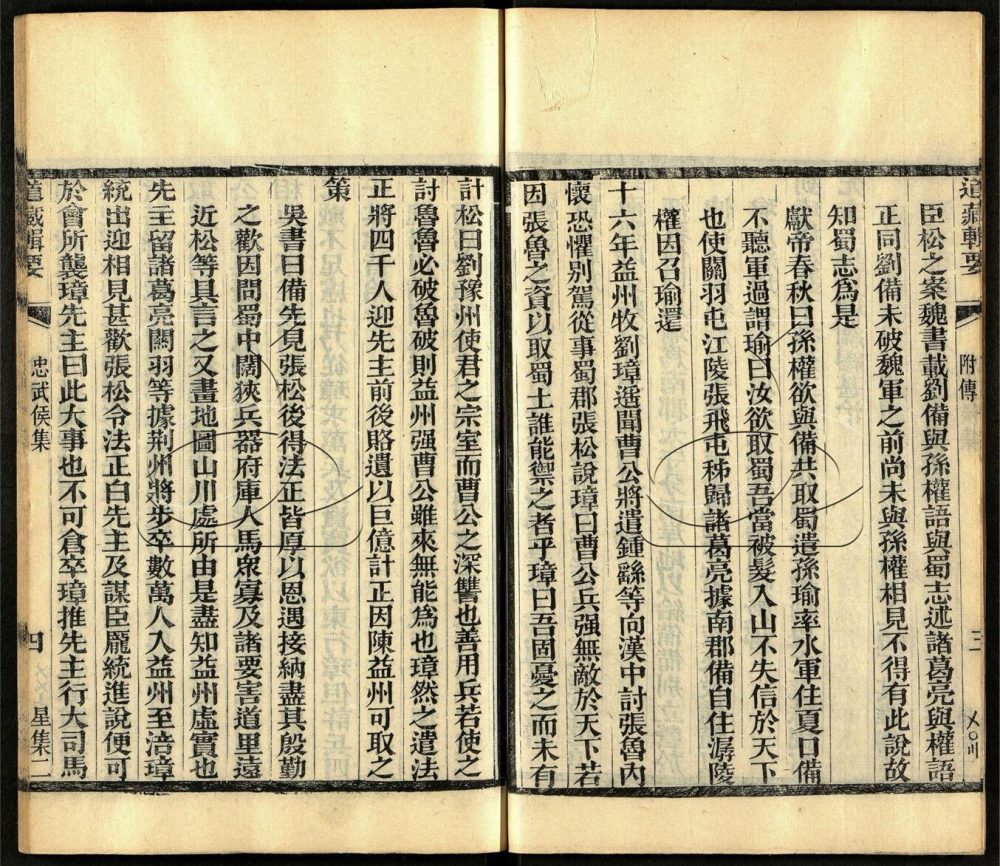 道藏輯要
附傳
三
臣松之案魏書載劉備與孫權語與蜀志述諸葛亮與權語
正同劉備未破魏軍之前尚未與孫權相見不得有此說故
知蜀志爲是
獻帝春秋曰孫權欲與備共取蜀遣孫瑜率水軍住夏口備
不聽軍過謂瑜曰汝欲取蜀吾當被髮入山不失信於天下
也使關羽屯江陵張飛屯秭歸諸葛亮據南郡備自住潺陵
權因召瑜還
十六年益州牧劉璋遥聞曹公將遣鍾繇等向漢中討張魯內
懷恐懼別駕從事蜀郡張松說璋曰曹公兵强無敵於天下若
因張魯之資以取蜀土誰能禦之者乎璋曰吾固憂之而未有
計松曰劉豫州使君之宗室而曹公之深讐也善用兵若使之
討魯魯必破魯破則益州强曹公雖來無能爲也璋然之遣法
正將四千人迎先主前後賂遺以巨億計正因陳益州可取之
策
吳書曰備先見張松後得法正皆厚以恩遇接納盡其殷勤
之歡因問蜀中闊狹兵器府庫人馬衆寡及諸要害道里遠
近松等具言之又畫地圖山川處所由是盡知益州虛實也
先主留諸葛亮關羽等據荆州將步卒數萬人入益州至涪璋
統出迎相見甚歡張松令法正白先主及謀臣龐統進說便可
於會所襲璋先主曰此大事也不可倉卒璋推先主行大司馬
道藏輯要
忠武侯集
四
星集二